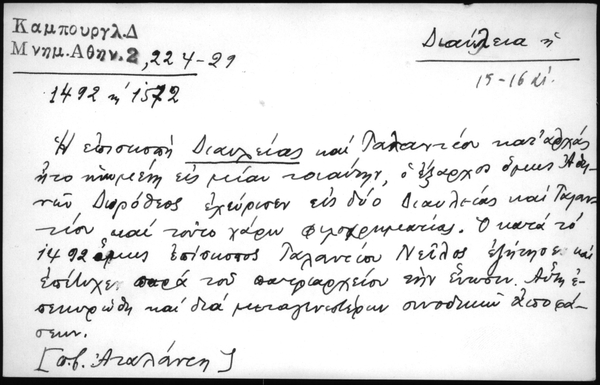 Καμπουργλ.Δ
Μνημ.Αθην.2, 224-29
Διαύλεια ἡ
15-16 αἰ.
1492 ἤ 1572
Ἡ ἐπισκοπή Διαυλείας καί Ταλαντίου κατ' ἀρχάς
ἦτο ἡνωμένη εἰς μίαν τοιαύτην, ὁ ἔξαρχος ὅμως Ἀθη-
νῶν Δωρόθεος ἐχώρισεν εἰς δύο Διαυλείας καί Ταλαν-
τίου καί τοῦτο χάριν φιλοχρηματίας. Ὁ κατά τό
1492 ὅμως ἐπίσκοπος Ταλαντίου Νεῖλος ἐζήτησε καί
ἐπέτυχε παρά τοῦ πατριαρχείου τήν ἕνωσιν. Αὕτη ἐ-
πεκυρώθη καί διά μεταγενεστέρων συνοδικῶν ἀποφά-
σεων.
[π.β. Ἀταλάντη]